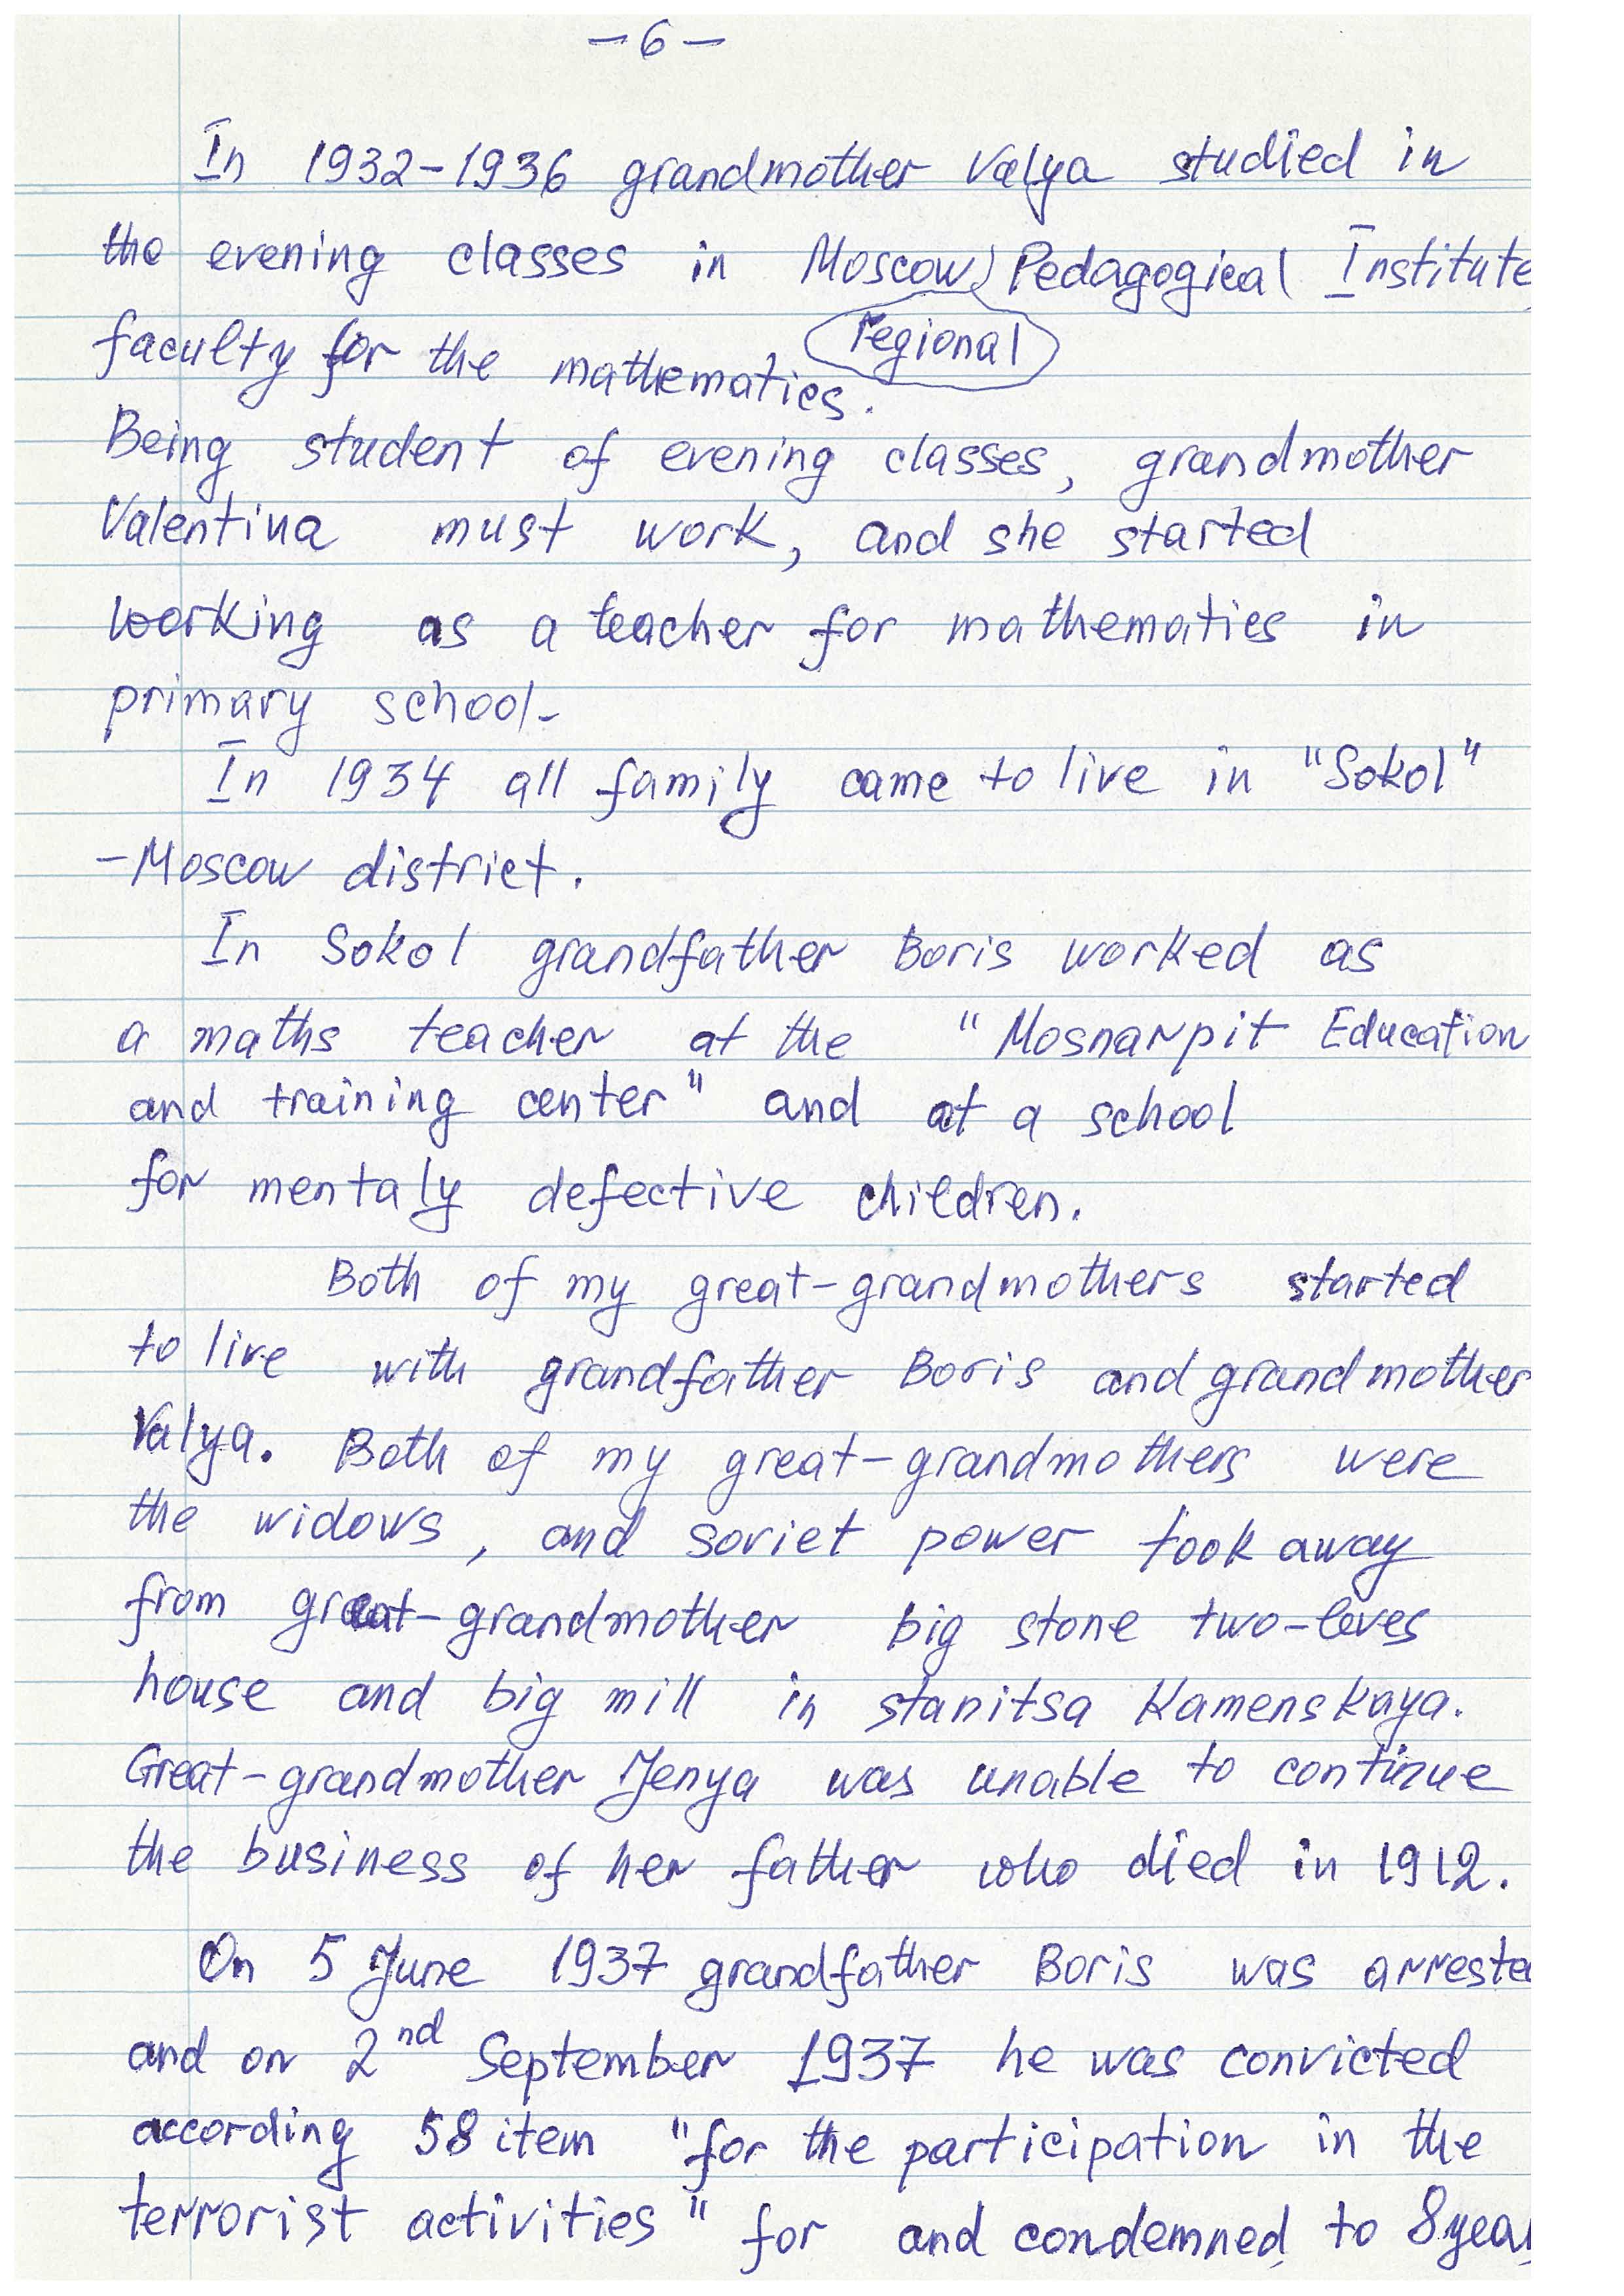 - 6 -
In 1932-1936 grandmother Valya studied in
the evening classes in Moscow Pedagogical Institute
regional
faculty for the mathematics.
Being student of evening classes, grandmother
Valentina must work, and she started
working as a teacher for mathematics in
primary school.
In 1934 all family came to live in "Sokol"
-Moscow district.
In Sokol grandfather Boris worked as
a maths teacher at the "Mosnarpit Education
and training center" and at a school
for mentaly defective children.
Both of my great-grandmothers started
to live with grandfather Boris and grandmother
Valya. Both of my great-grandmothers were
the widows, and soviet power took away
from great-grandmother big stone two-leves
house and big mill in stanitsa Kamenskaya.
Great-grandmother Jenya was unable to continue
the business of her father who died in 1912.
On 5 June 1937 grandfather Boris was arreste
and on 2nd September 1937 he was convicted
according 58 item "for the participation in the
terrorist activities" for and condemned to 8 yea